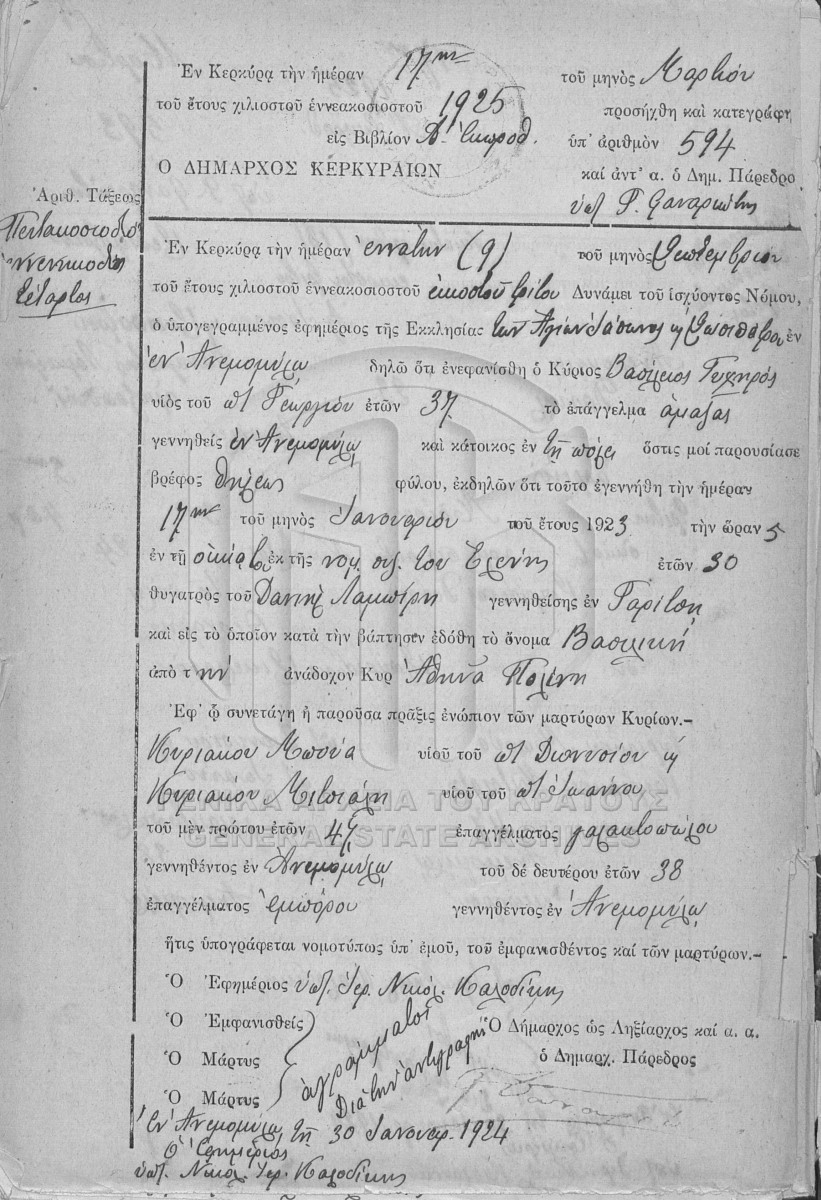 Ἐν Κερκύρᾳ τὴν ἡμέραν 17ην τοῦ μηνὸς Μαρτίου
τοῦ ἔτους χιλιοστοῦ ἐννεακοσιοστοῦ 1925 προσήχθη καὶ κατεγράφη
εἰς Βιβλίον Α. ἐκπροθ. ὑπ' ἀριθμὸν 594
Ο ΔΗΜΑΡΧΟΣ ΚΕΡΚΥΡΑΙΩΝ καί ἀντ' α. ὁ Δημ. Πάρεδρο
ὑπ.
Ἀριθ. Τάξεως
Πεντακοσιοστὸν
ἐννενηκοστὸν
τέταρτον
Ἐν Κερκύρᾳ τὴν ἡμέραν ἐννάτην (9) τοῦ μηνὸς Σεπτεμβρίου
τοῦ ἔτους χιλιοστοῦ ἐννεακοσιοστοῦ εἰκοστοῦ τρίτου Δυνάμει τοῦ ἰσχύοντος Νόμου,
ὁ ὑπογεγραμμένος ἐφημέριος τῆς Ἐκκλησίας τῶν Ἁγίων Ἰάσωνος ϗ Σωσιπάτρου ἐν
ἐν Ἀνεμομύλῳ δηλῶ ὅτι ἐνεφανίσθη ὁ Κύριος Βασίλειος
υἱὸς τοῦ ποτὲ Γεωργίου ἐτῶν 37 τὸ ἐπάγγελμα ἁμαξᾶς
γεννηθείς ἐν Ἀνεμομύλῳ καὶ κάτοικος ἐν τῇ πόλει ὅστις μοί παρουσίασε
βρέφος θήλεως φύλου, ἐκδηλῶν ὅτι τοῦτο ἐγεννήθη τὴν ἡμέραν
17ην τοῦ μηνὸς Ἰανουαρίου τοῦ ἔτους 1923 τὴν ὥραν 5
ἐν τῇ οἰκίᾳ του ἐκ τῆς νομ. συζ. του Ἑλένης ἐτῶν 30
θυγατρὸς τοῦ Δανιὴλ Λαμπίρη γεννηθείσης ἐν Γαρίτσῃ
καὶ εἰς τὸ ὁποῖον κατὰ τὴν βάπτησιν ἐδόθη τὸ ὄνομα Βασιλικὴ
ἀπὸ τὴν ἀνάδοχον Κυρ Ἀθηνᾶ
Ἐφ' ᾧ συνετάγη ἡ παροῦσα πρᾶξις ἐνώπιον τῶν μαρτύρων Κυρίων.—
Κυριάκου Μπούα υἱοῦ τοῦ ποτὲ Διονυσίου ϗ
Κυριάκου Μιτσιάλη υἱοῦ τοῦ ποτὲ Ἰωάννου
ΓΕΝΙΚΑ ΑΡΧΕΙΑ ΤΟΥ ΚΡΑΤΟΥΣ
τοῦ μὲν πρώτου ἐτῶν 45 ἐπαγγέλματος γαλακτοπώλου
GENERAL STATE ARCHIVES
γεννηθέντος ἐν Ἀνεμομύλῳ τοῦ δέ δευτέρου ἐτῶν 38
ἐπαγγέλματος ἐμπόρου γεννηθέντος ἐν Ἀνεμομύλῳ
ἥτις ὑπογράφεται νομοτύπως ὑπ' ἐμοῦ, τοῦ ἐμφανισθέντος καί τῶν μαρτύρων.—
Ὁ Ἐφημέριος ὑπ. Ἱερ. Νικόλ. Καλοδίκης
Ὁ Ἐμφανισθείς
Ὁ Μάρτυς
Ὁ Μάρτυς
ἀγράμματοι
Διὰ τὴν ἀντιγραφὴν
Ὁ Δήμαρχος ὡς Ληξίαρχος καί α. α.
ὁ Δημαρχ. Πάρεδρος
Ἐν Ἀνεμομύλῳ τῇ 30 Ἰανουαρ. 1924
Ὁ Ἐφημέριος
ὑπ. Νικόλ. Ἱερ. Καλοδίκης